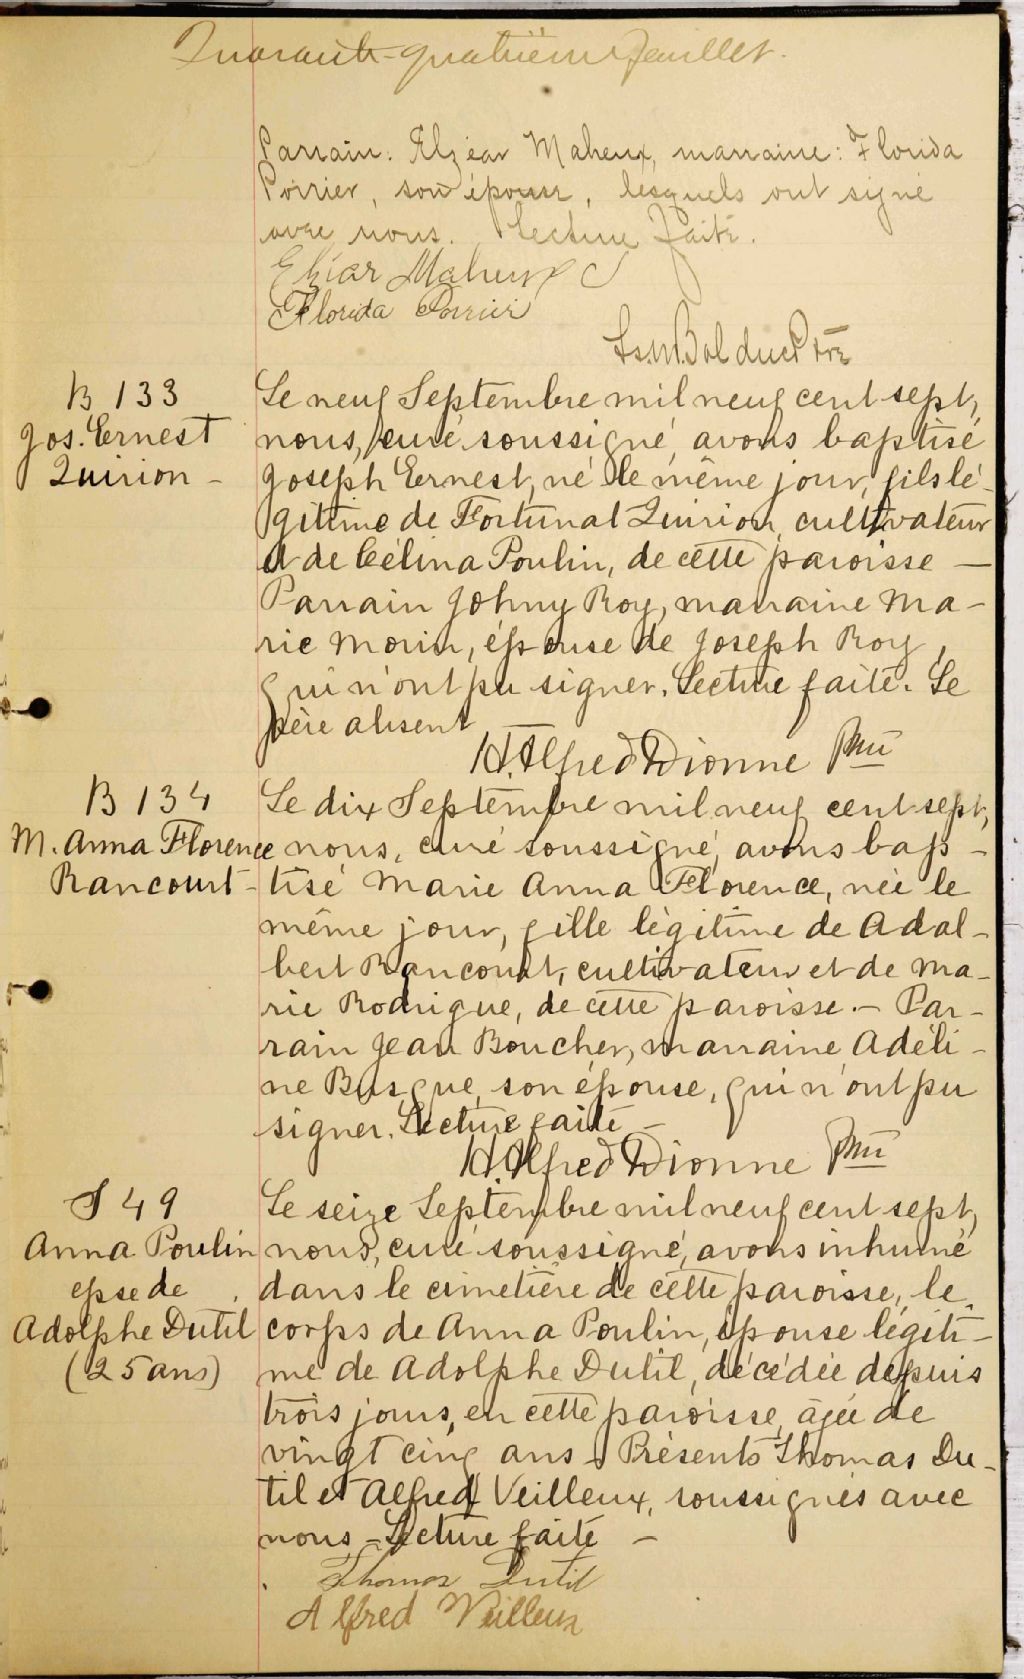 Quarante-quatrième feuillet.
Parrain: Elzéar Maheux, marraine: Florida
Poirier, son épouse, lesquels ont signé
avec nous. Lecture faite.
Elzéar Maheux
Florida Poirier
Bolduc Ptre
B 133
Jos. Ernest
Quirion -
Le neuf Septembre mil neuf cent sept,
nous, curé soussigné, avons baptisé
Joseph Ernest, né le même jour, fils lé-
gitime de Fortunat Quirion, cultivateur
et de Célina Poulin, de cette paroisse —
Parrain Johny Roy, marraine Ma-
rie Morin, épouse de Joseph Roy,
qui n'ont pu signer. Lecture faite. Le
père absent
H. Alfred Dionne Ptre
B 134
M. Anna Florence
Rancourt -
Le dix Septembre mil neuf cent sept,
nous, curé soussigné, avons bap-
tisé Marie Anna Florence, née le
même jour, fille légitime de Adal-
bert Rancourt, cultivateur et de Ma-
rie Rodrigue, de cette paroisse. — Par-
rain Jean Boucher, marraine Adéli-
ne Busque, son épouse, qui n'ont pu
signer. Lecture faite —
H. Alfred Dionne Ptre
S 49
Anna Poulin
epse de
Adolphe Dutil
(25 ans)
Le seize Septembre mil neuf cent sept,
nous, curé soussigné, avons inhumé
dans le cimetière de cette paroisse, le
corps de Anna Poulin, épouse légiti-
me de Adolphe Dutil, décédée depuis
trois jours, en cette paroisse, âgée de
vingt cinq ans - Présents Thomas Du-
til et Alfred Veilleux, soussignés avec
nous - Lecture faite —
Thomas Dutil
Alfred Veilleux